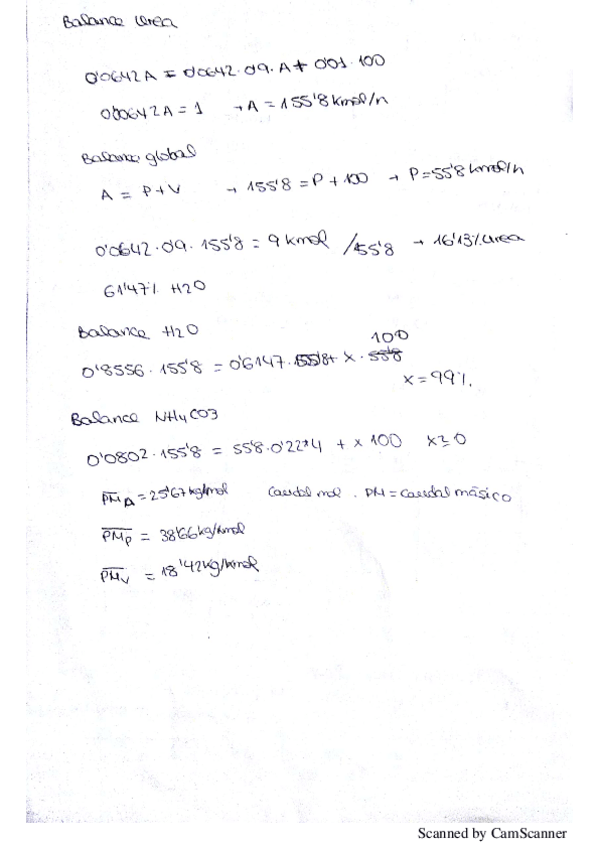 Balance Urea
0'0642A = 0'0642·0'9·A + 0'01·100
0'00642A = 1 → A = 155'8 kmol/h
Balance global
A = P+V → 155'8 = P + 100 → P = 55'8 kmol/h
0'0642·0'9·155'8 = 9 kmol /55'8 → 16'13% urea
61'47% H2O
Balance H2O
100
0'8556·155'8 = 0'6147·55'8 + x·
x = 99%
Balance NH4CO3
0'0802·155'8 = 55'8·0'2274 + x 100 x≥0
PMA = 25'67 kg/mol Caudal mol · PM = caudal másico
PMP = 38'66 kg/kmol
PMV = 18'42 kg/kmol
Scanned by CamScanner